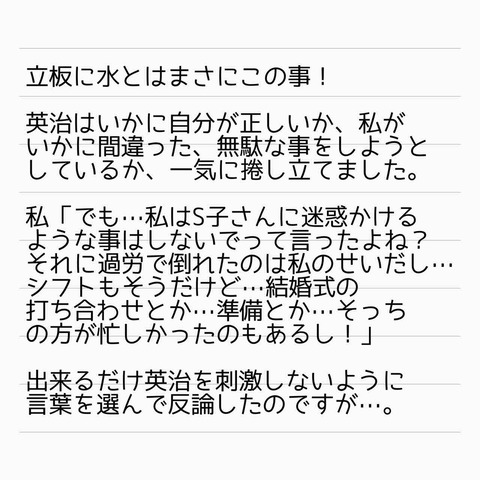 立板に水とはまさにこの事！
英治はいかに自分が正しいか、私が
いかに間違った、無駄な事をしようと
しているか、一気に捲し立てました。
私「でも…私はS子さんに迷惑かける
ような事はしないでって言ったよね？
それに過労で倒れたのは私のせいだし…
シフトもそうだけど…結婚式の
打ち合わせとか…準備とか…そっち
の方が忙しかったのもあるし！」
出来るだけ英治を刺激しないように
言葉を選んで反論したのですが…。